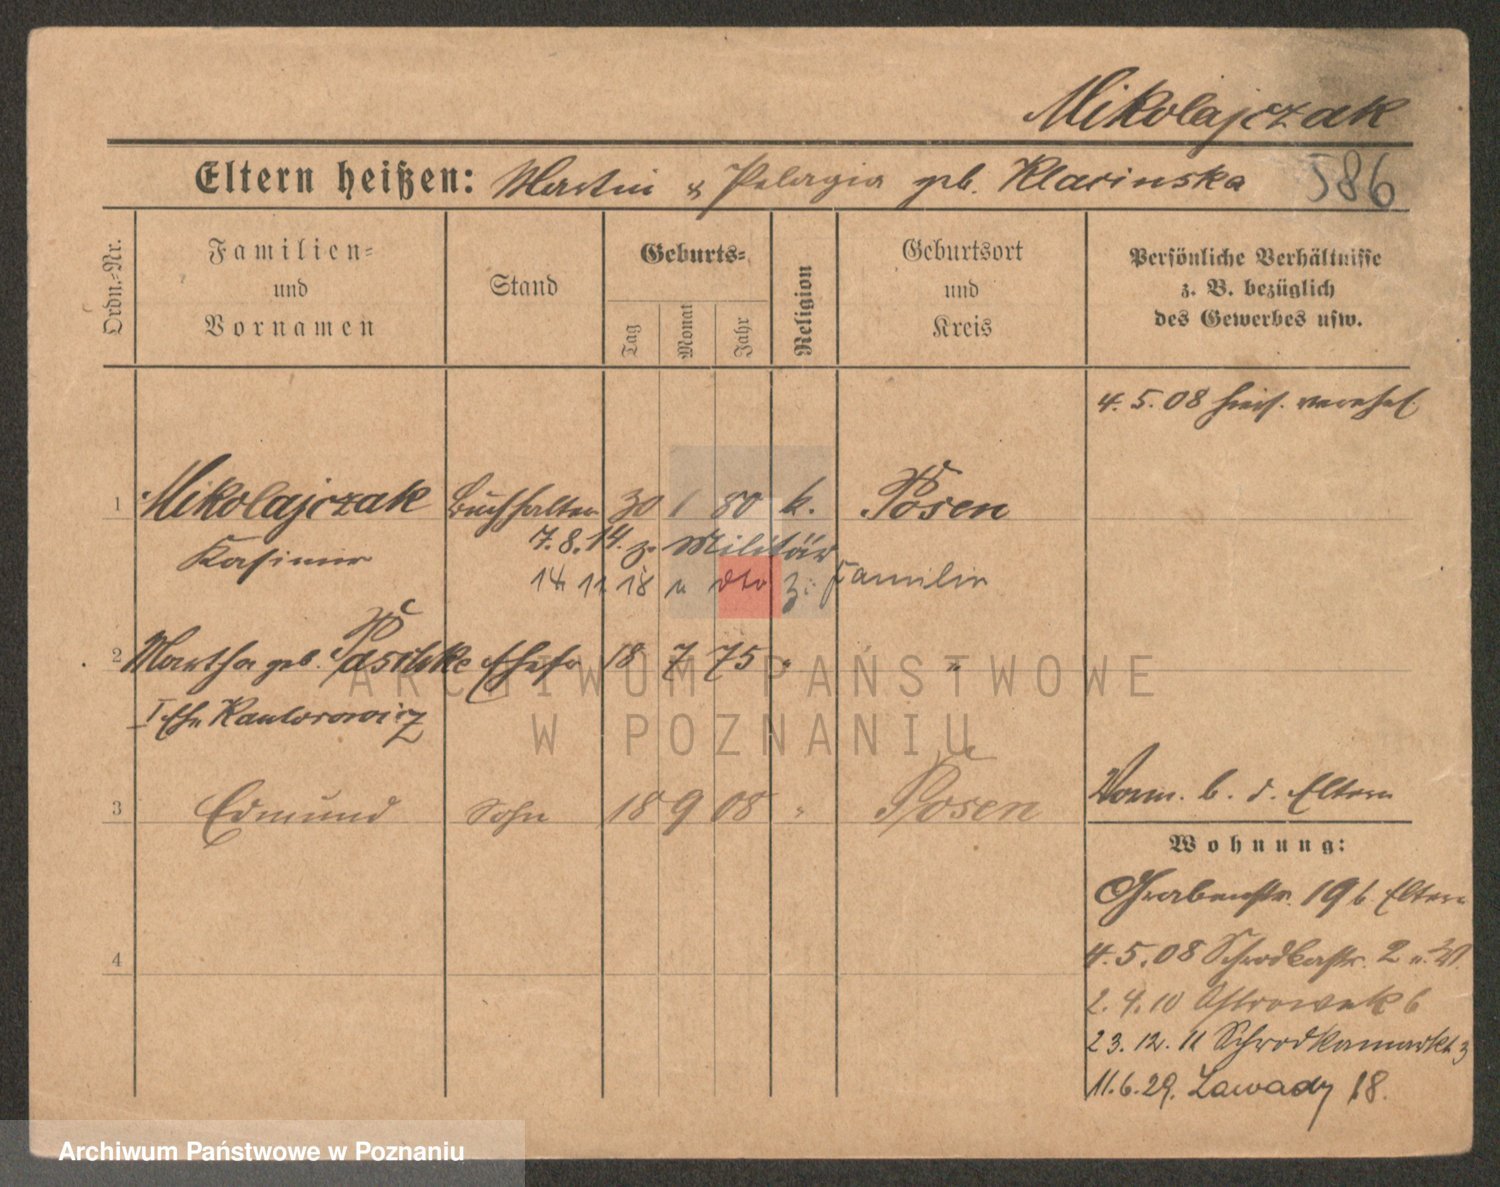 Mikolajczak
Eltern heißen: Martin & Pelagia geb. Klarinska 586
Ordn.-Nr.
Familien- und Vornamen
Stand
Geburts-
Tag
Monat
Jahr
Religion
Geburtsort und Kreis
Persönliche Verhältnisse
z. B. bezüglich
des Gewerbes usw.
4.5.08 hies. verehel.
1 Mikolajczak Buchhalter 30 1 80 k. Posen
Kasimir
7.8.14. z. Militär
14 11 18 v dto z: Familie
2 Martha geb. Paschke Ehefr 18 7 75 " "
I Ehe Kantorowicz
3 Edmund Sohn 18 9 08 " Posen
Vorm. b. d. Eltern
Wohnung:
Grabenstr. 19 b. Eltern
4
4.5.08 Schrodkastr. 2 u. W.
2.4.10 Ostrowek 6
23.12.11 Schrodkamarkt 3
11.6.29. Zawady 18.
ARCHIWUM PAŃSTWOWE
W POZNANIU
Archiwum Państwowe w Poznaniu